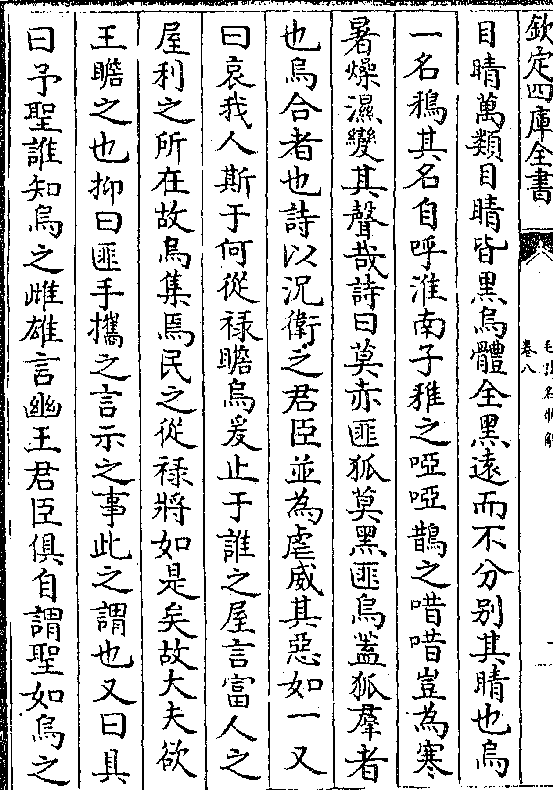 欽定四庫全書
卷八
目睛萬類目睛皆黑烏體全黑逺而不分别其睛也烏
一名鵶其名自呼淮南子稚之啞啞鵲之唶唶豈為寒
暑燥濕變其聲哉詩曰莫赤匪狐莫黑匪烏蓋狐羣者
也烏合者也詩以況衛之君臣並為虐威其惡如一又
曰哀我人斯于何從禄瞻烏爰止于誰之屋言富人之
屋利之所在故烏集焉民之從禄將如是矣故大夫欲
王瞻之也抑曰匪手攜之言示之事此之謂也又曰具
曰予聖誰知烏之雌雄言幽王君臣俱自謂聖如烏之